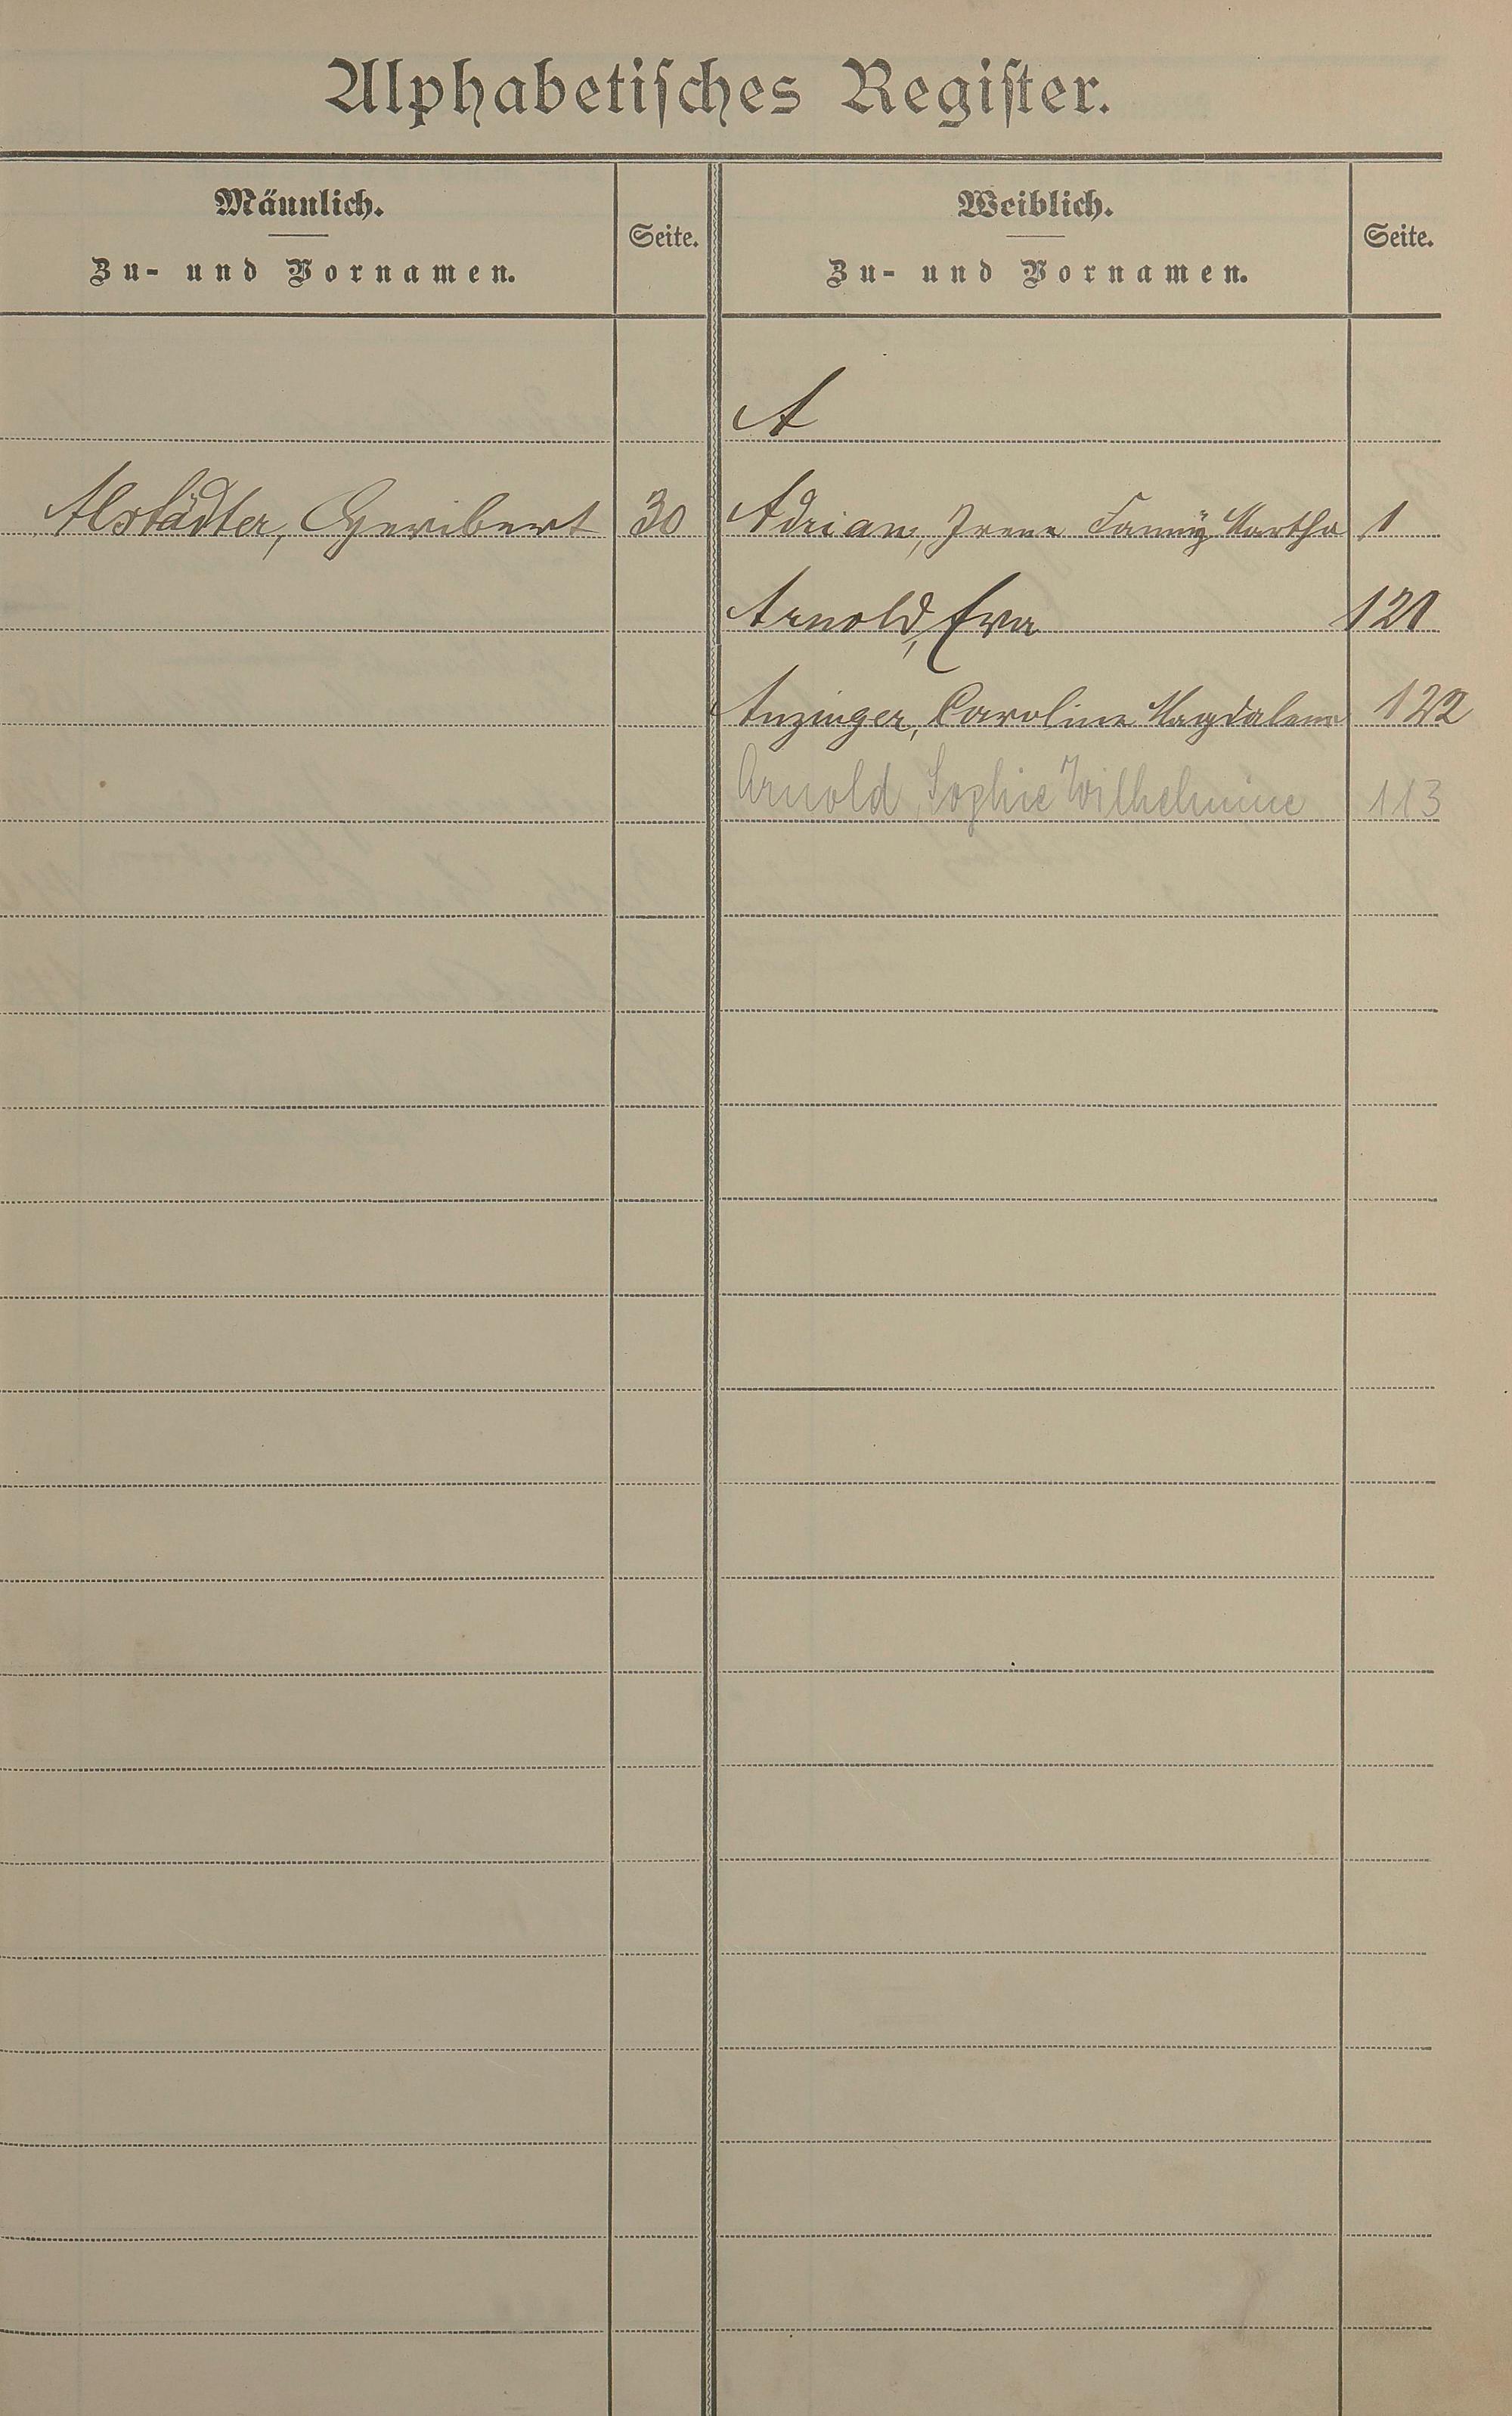 Alphabetisches Register.
Männlich.
Zu- und Vornamen.
Seite.
Weiblich.
Zu- und Vornamen.
Seite.
A
Alstädter, Heribert 30
Adrian, Irene Fanny Martha 1
Arnold, Eva 121
Anzinger, Caroline Magdalena 122
Arnold, Sophie Wilhelmine 113